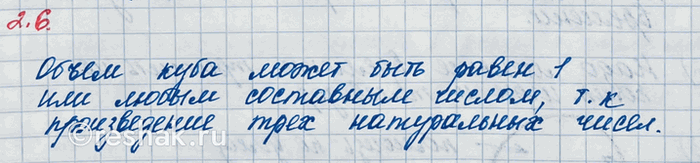 2.6.
Объем куба может быть равен 1
или любым составным числом, т.к
произведение трех натуральных чисел.
reshak.ru